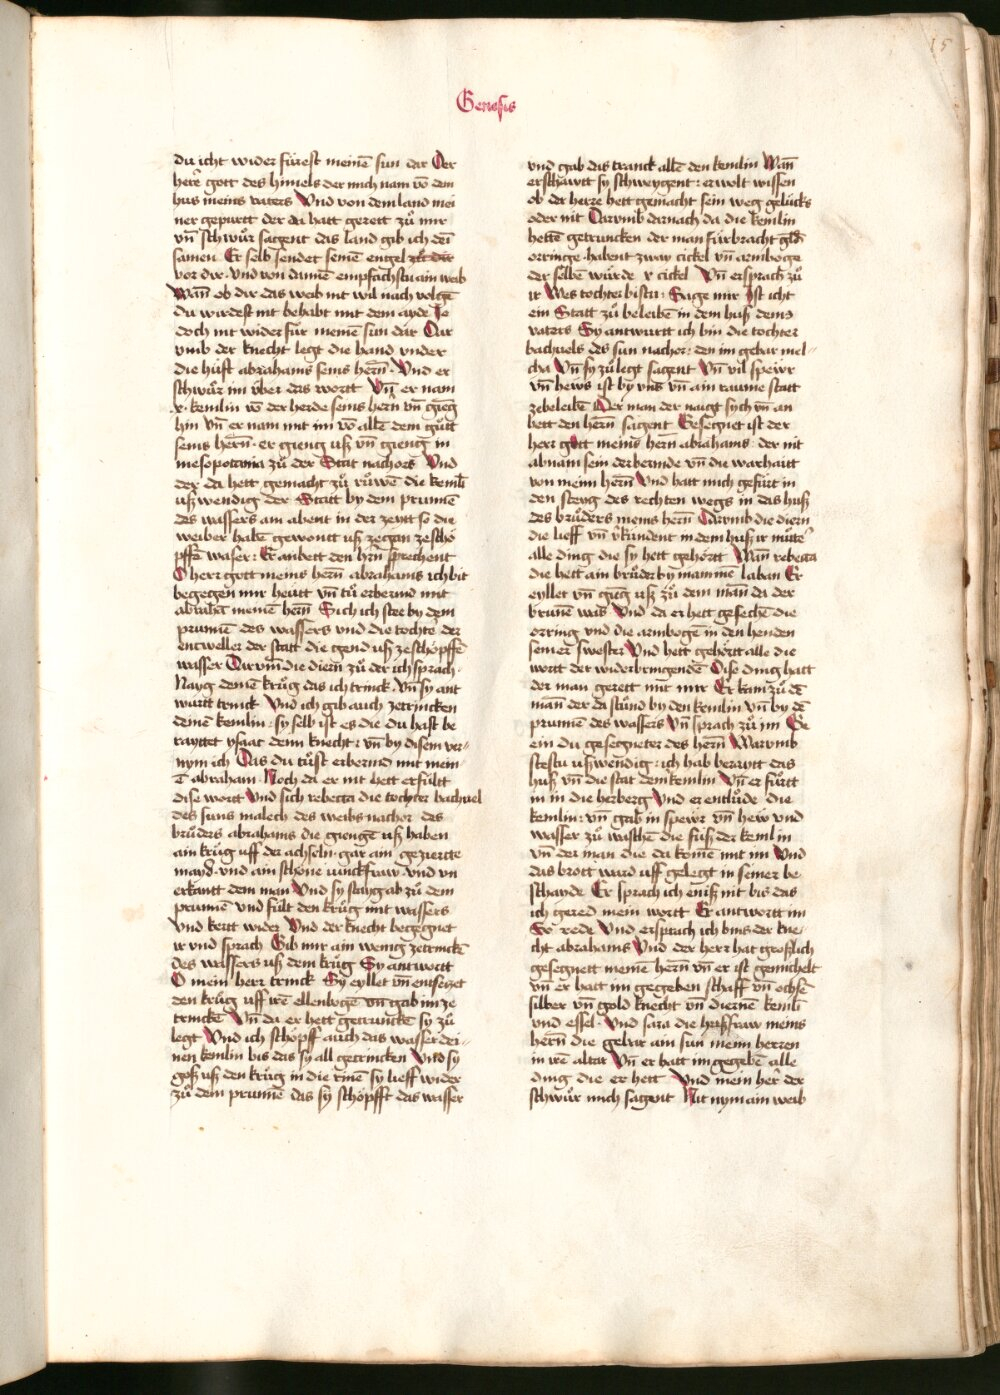 15
Genesis
du icht wider fürest meinē sun dar Der
herē gott des himels der mich nam vō dem
hus meins vaters Vnd von dem land mei
ner gepurtt der da hatt gerett zů mir
vn̄ schwůr sagent das land gib ich dei
samen Er selb sendet seinē engel
vor dir · vnd von dannē empfachstu ain weib
Wan̄ ob dir das weib nit wil nach volgē
du wirdest nit behabt mit dem ayde Je
doch nit wider für meinē sun dar Dar
vmb der knecht legt die hand vnder
die hüft abrahams seins hern̄ · Vnd er
schwůr im v̈ber das wortt Vn̄ er nam
x · kemlin vō der herde seins hern̄ vn̄ gieng
hin vn̄ er nam mit im vō allē dem gůtt
seins hern̄ · er gieng usz vn̄ gieng in
mesopotania zů der Statt nachors Vnd
der da hett gemacht zů růwē die kemli
uszwendig der Statt by dem prunnē
des wassers am abent in der zeytt so die
weiber habē gewontt usz zegan zeschö
pffē waser : Er anbett den hrn̄ sprechent
O herr gott meins hern̄ abrahams ich bit
begegen mir heutt vn̄ tů erbermd mit
abrahā meinē hern̄ Sich ich stee by dem
prunnē des wassers vnd die tochte der
entweller der statt die gend usz ze schöpffē
wasser Darvm̄ die diern zů der ich sprach ·
Nayg deinē krůg das ich trinck · Vn̄ sy ant
wurtt trinck Vnd ich gib auch zetrincken
deinē kemlin : sy selb ist es die du hast be
rayttet ysaac deim knecht : vn̄ by disem ver
nym ich Das du tůst erbermd mit mein
ē abraham · Noch da er nit hett erfültt
dise wortt Vnd sich rebecca die tochter bachuel
des suns malech des weibs nachor des
brůders abrahams die giengē usz haben
ain krůg uff der achseln · gar ain gezierte
mayd · vnd ain schöne iunckfraw · vnd vn
erkantt dem man Vnd sy stayg ab zů dem
prunnē vnd fült den krůg mit wassers
vnd kertt wider Vnd der knecht begegnet
ir vnd sprach Gib mir ain wenig ze trinckē
des wassers usz dem krůg Sy antwortt
O mein herr trinck Sy eyllet vn̄ entseczet
den krůg uff irē ellenbogē vn̄ gab im ze
trinckē Vn̄ da er hett getrunckē sy zů
legt Vnd ich schöpff auch das wasser dei
nen kemlin bis das sy all getrincken Vnd sy
gosz usz den krůg in die rinē sy lieff wider
zů dem prunnē das sy schöpfft das wasser
vnd gab das tranck allē den kemlin Wan̄
er schawtt sy schweygent : er wolt wissen
ob der herre hett gemacht sein weg gelücks
oder nit Darvmb darnach da die kemlin
hettē getruncken der man fürbracht gold
orringe · habent zway cickel vn̄ armboge
der selbē würde x cickel Vn̄ er sprach zů
ir Wes tochter bistu : Sage mir Ist icht
ein Statt zů beleiben in dem husz deins
vaters Sy antwurtt ich bin die tochter
bachuels des sun nachor : den im gebar mel
cha Vn̄ sy zů legt sagent Vn̄ vil speiw
vn̄ hews ist by vns vn̄ ain raume statt
zebeleibē Der man der naigt sych vn̄ an
bett den hern̄ sagent Gesegnet ist der
herr gott meins hern̄ abrahams : der nit
abnam sein derbermde vn̄ du warhaitt
von meim hern̄ Vnd hatt mich gefürt in
den steyg des rechten wegs in das husz
des brůders meins hern̄ Darvmb die diern
die lieff vn̄ v̈kündent in dem husz ir můtē
alle ding die sy hett gehörtt Wan̄ rebecca
die hett ain brůder by nammē laban Er
eyllet vn̄ gieg usz zů dem man̄ da der
brunē was Vnd da er hett gesechē die
orring vnd die armbogē in den henden
seiner swester Vnd hett gehört alle die
wortt der widerbringendē Dise ding hatt
der man gerett mit mir Er kam zů dē
man̄ der da stůnd by den kemlin vn̄ by dē
prunnē des wassers Vn̄ sprach zů im Ge
ein du gesegneter des hern̄ Warvmb
stestu uszwendig : ich hab beraytt das
husz vn̄ die stat dem kemlin Vn̄ er fürtt
in in die herberg Vnd er entlůde die
kemlin : vn̄ gab in speiw vn̄ hew vnd
wasser zů waschē die füsz der kemlin
vn̄ der man die da komē mit im Vnd
das brott ward uff gelegt in seiner be
schawde Er sprach ich enisz nit bis das
ich gered mein wortt Er antwortt im
Er rede Vnd er sprach ich bins der kne
cht abrahams Vnd der herr hat groszlich
gesegnett meinē hern̄ vn̄ er ist gemichelt
vn̄ er hatt im gegeben schaff vn̄ ochsē
silber vn̄ gold knecht vn̄ diernē kemli
vnd essel · Vnd sara die hauszfraw meins
hern̄ die gebar ain sun meim herren
in irē alttar Vn̄ er hatt im gegebē alle
ding die er hett Vnd mein her̄ der
schwůr mich sagent Nit nym ain weib